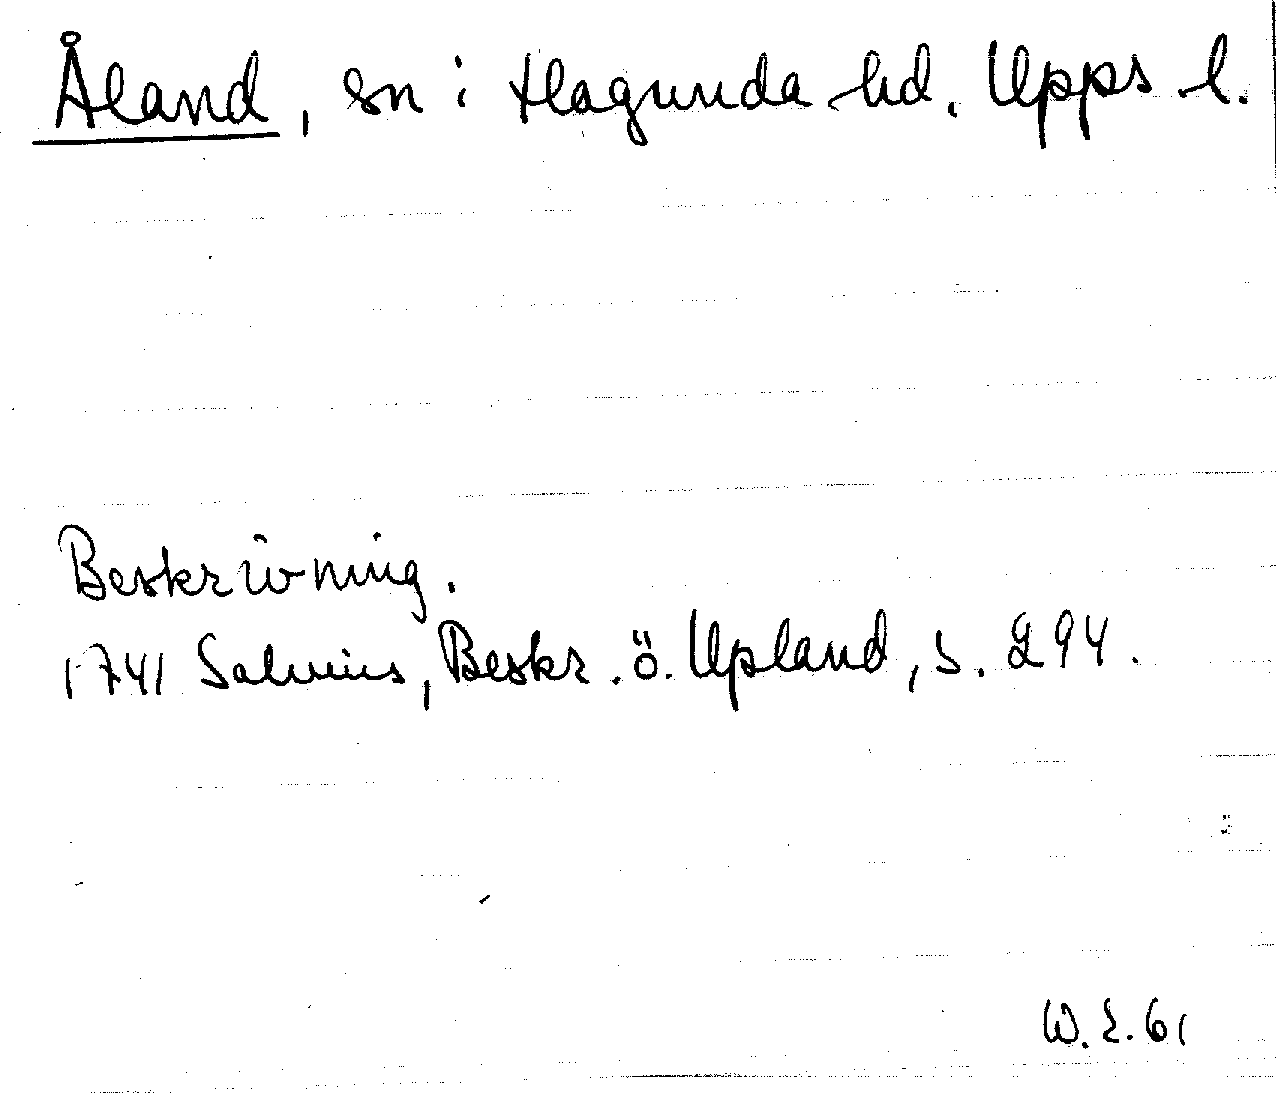 Åland, sn i Hagunda hd. Upps l.
Beskrivning.
1741 Salvius, Beskr. ö. Upland, s. 294.
W. E. 61